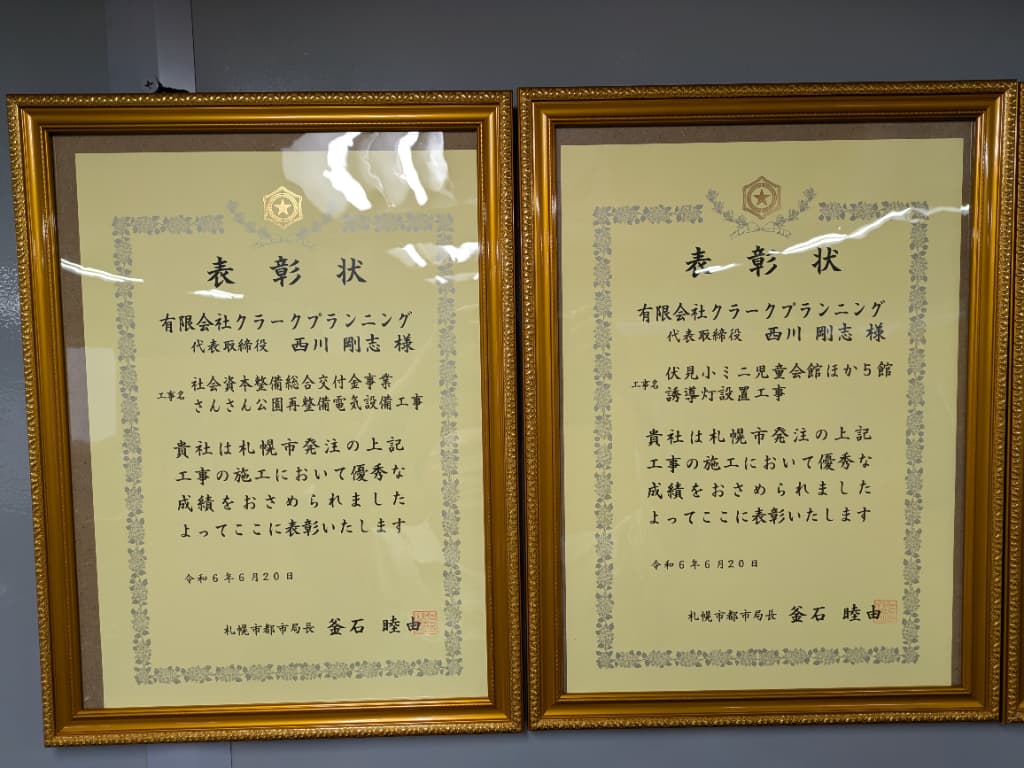 表彰状
有限会社クラークプランニング
代表取締役 西川 剛志 様
工事名 社会資本整備総合交付金事業
さんさん公園再整備電気設備工事
貴社は札幌市発注の上記
工事の施工において優秀な
成績をおさめられました
よってここに表彰いたします
令和6年6月20日
札幌市都市局長 釜石 睦由
表彰状
有限会社クラークプランニング
代表取締役 西川 剛志 様
工事名 伏見小ミニ児童会館ほか5館
誘導灯設置工事
貴社は札幌市発注の上記
工事の施工において優秀な
成績をおさめられました
よってここに表彰いたします
令和6年6月20日
札幌市都市局長 釜石 睦由